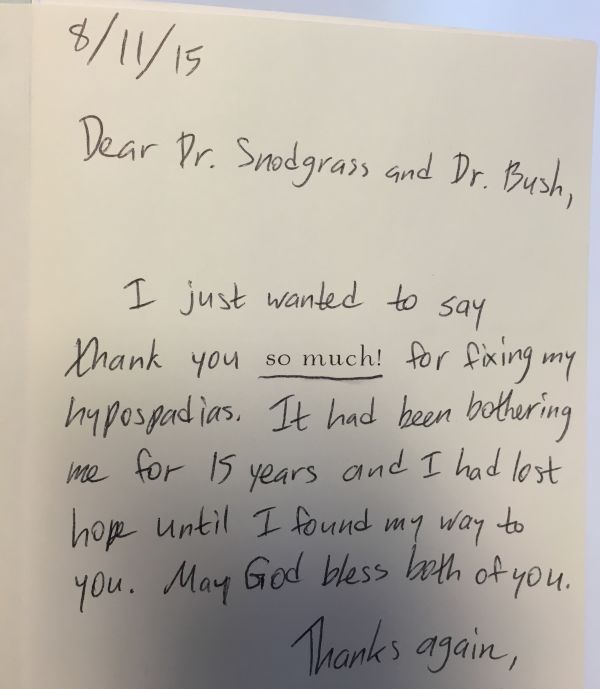 8/11/15
Dear Dr. Snodgrass and Dr. Bush,
I just wanted to say
thank you so much! for fixing my
hypospadias. It had been bothering
me for 15 years and I had lost
hope until I found my way to
you. May God bless both of you.
Thanks again,